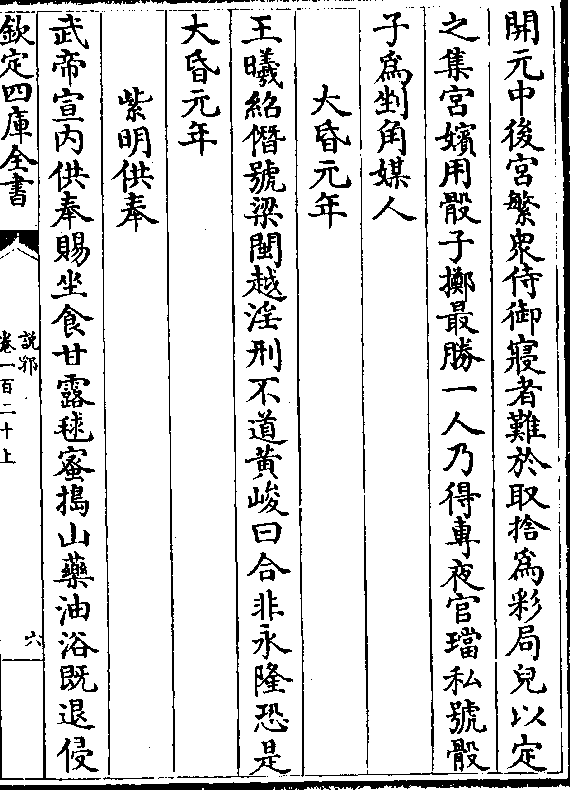 開元中後宮繁衆侍御寢者難於取捨爲彩局兒以定
之集宮嬪用骰子擲最勝一人乃得專夜官璫私號骰
子爲剉角媒人
大昏元年
王曦紹僭號梁閩越淫刑不道黃峻曰合非永隆恐是
大昏元年
紫明供奉
武帝宣内供奉賜坐食甘露毬蜜搗山藥油浴既退侵
欽定四庫全書
說郛
卷一百二十上
六